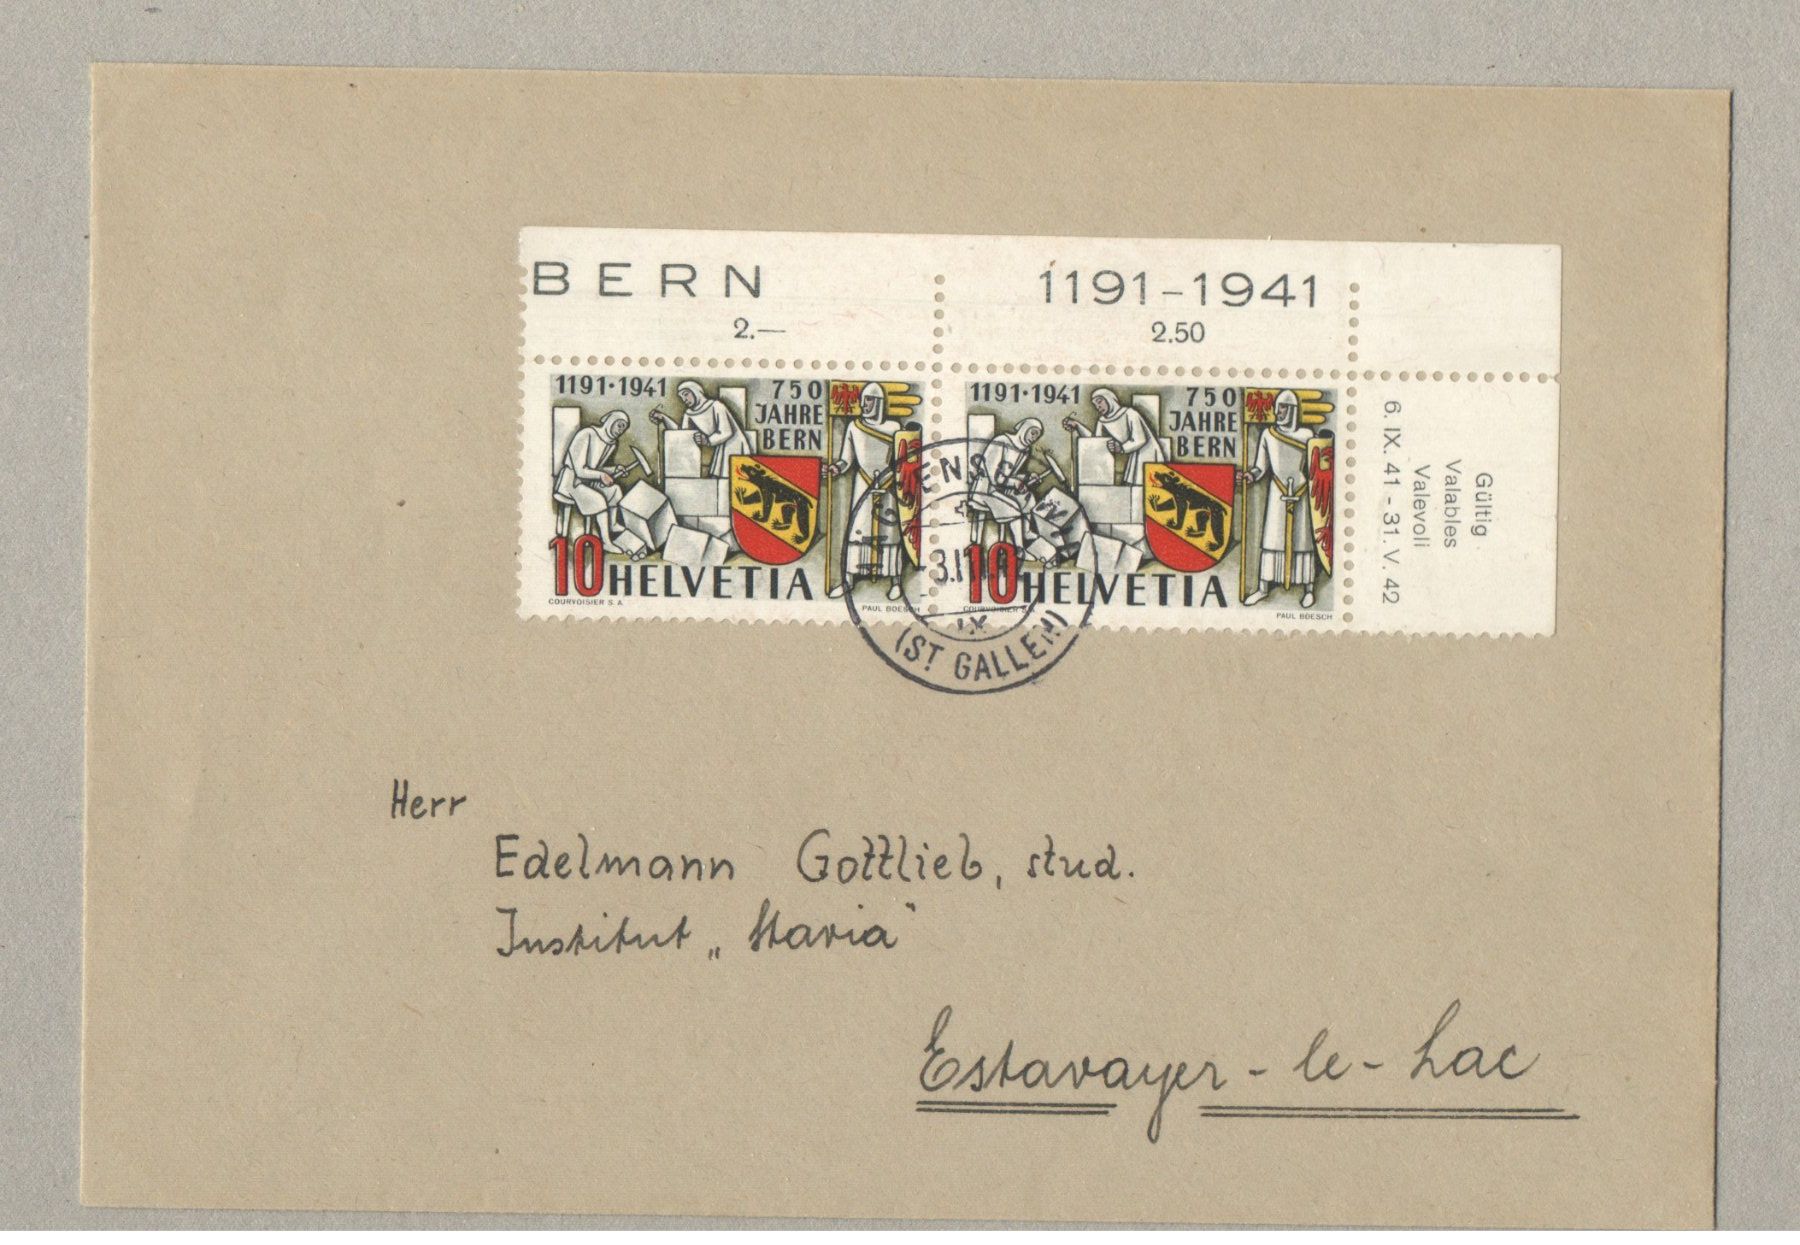 BERN 1191-1941
2.— 2.50
1191·1941 750
JAHRE
BERN
10 HELVETIA
COURVOISIER S.A. PAUL BOESCH
1191·1941 750
JAHRE
BERN
10 HELVETIA
COURVOISIER S.A. PAUL BOESCH
Gültig
Valables
Valevoli
6. IX. 41 - 31. V. 42
(ST GALLEN)
Herr
Edelmann Gottlieb, stud.
Institut „Stavia"
Estavayer-le-Lac